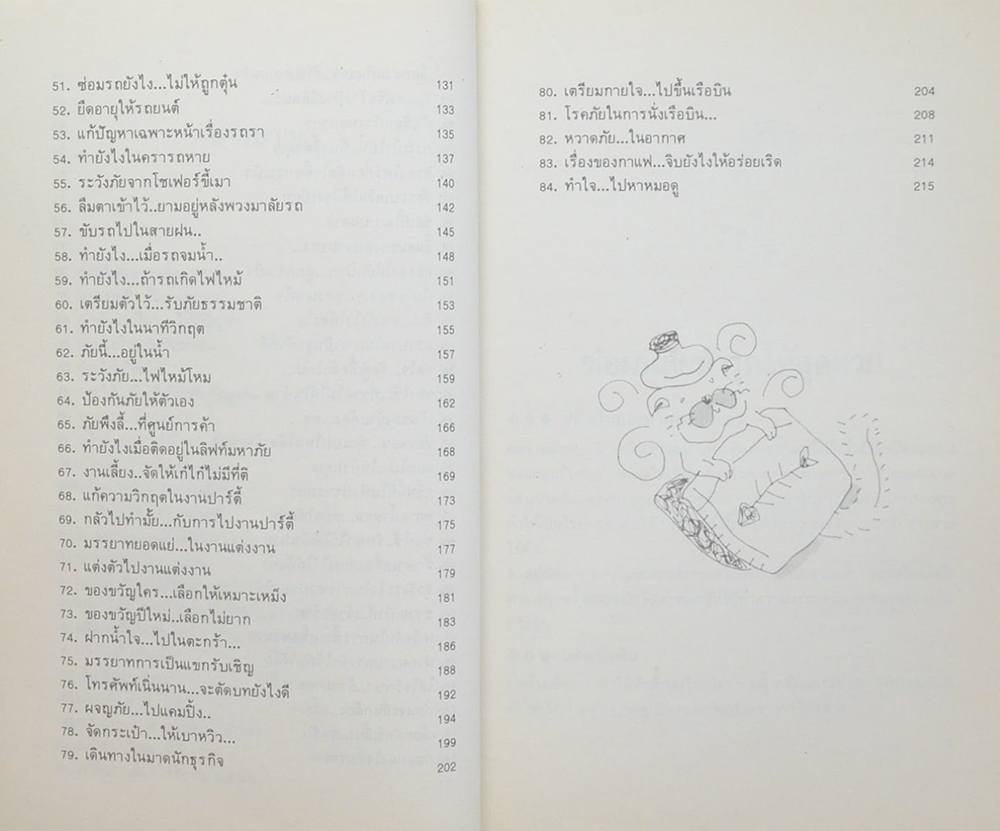 51. ซ่อมรถยังไง...ไม่ให้ถูกตุ๋น 131
52. ยืดอายุให้รถยนต์ 133
53. แก้ปัญหาเฉพาะหน้าเรื่องรถรา 135
54. ทำยังไงในคราวรถหาย 137
55. ระวังภัยจากโชเฟอร์ขี้เมา 140
56. ลืมตาเข้าไว้..ยามอยู่หลังพวงมาลัยรถ 142
57. ขับรถไปในสายฝน.. 145
58. ทำยังไง...เมื่อรถจมน้ำ.. 148
59. ทำยังไง...ถ้ารถเกิดไฟไหม้ 151
60. เตรียมตัวไว้...รับภัยธรรมชาติ 153
61. ทำยังไงในนาทีวิกฤต 155
62. ภัยนี้...อยู่ในน้ำ 157
63. ระวังภัย...ไฟไหม้โหม 159
64. ป้องกันภัยให้ตัวเอง 162
65. ภัยพึงลี้...ที่ศูนย์การค้า 166
66. ทำยังไงเมื่อติดอยู่ในลิฟท์มหาภัย 168
67. งานเลี้ยง..จัดให้เก๋ไก๋ไม่มีที่ติ 169
68. แก้ความวิกฤตในงานปาร์ตี้ 173
69. กลัวไปทำมั้ย...กับการไปงานปาร์ตี้ 175
70. มรรยาทยอดแย่...ในงานแต่งงาน 177
71. แต่งตัวไปงานแต่งงาน 179
72. ของขวัญใคร...เลือกให้เหมาะเหม็ง 181
73. ของขวัญปีใหม่..เลือกไม่ยาก 183
74. ฝากน้ำใจ...ไปในตะกร้า... 186
75. มรรยาทการเป็นแขกรับเชิญ 188
76. โทรศัพท์เนิ่นนาน...จะตัดบทยังไงดี 192
77. ผจญภัย...ไปแคมปิ้ง.. 194
78. จัดกระเป๋า...ให้เบาหวิว... 199
79. เดินทางในมาดนักธุรกิจ 202
80. เตรียมกายใจ...ไปขึ้นเรือบิน 204
81. โรคภัยในการนั่งเรือบิน... 208
82. หวาดภัย...ในอากาศ 211
83. เรื่องของกาแฟ...จิบยังไงให้อร่อยเริด 214
84. ทำใจ...ไปหาหมอดู 215